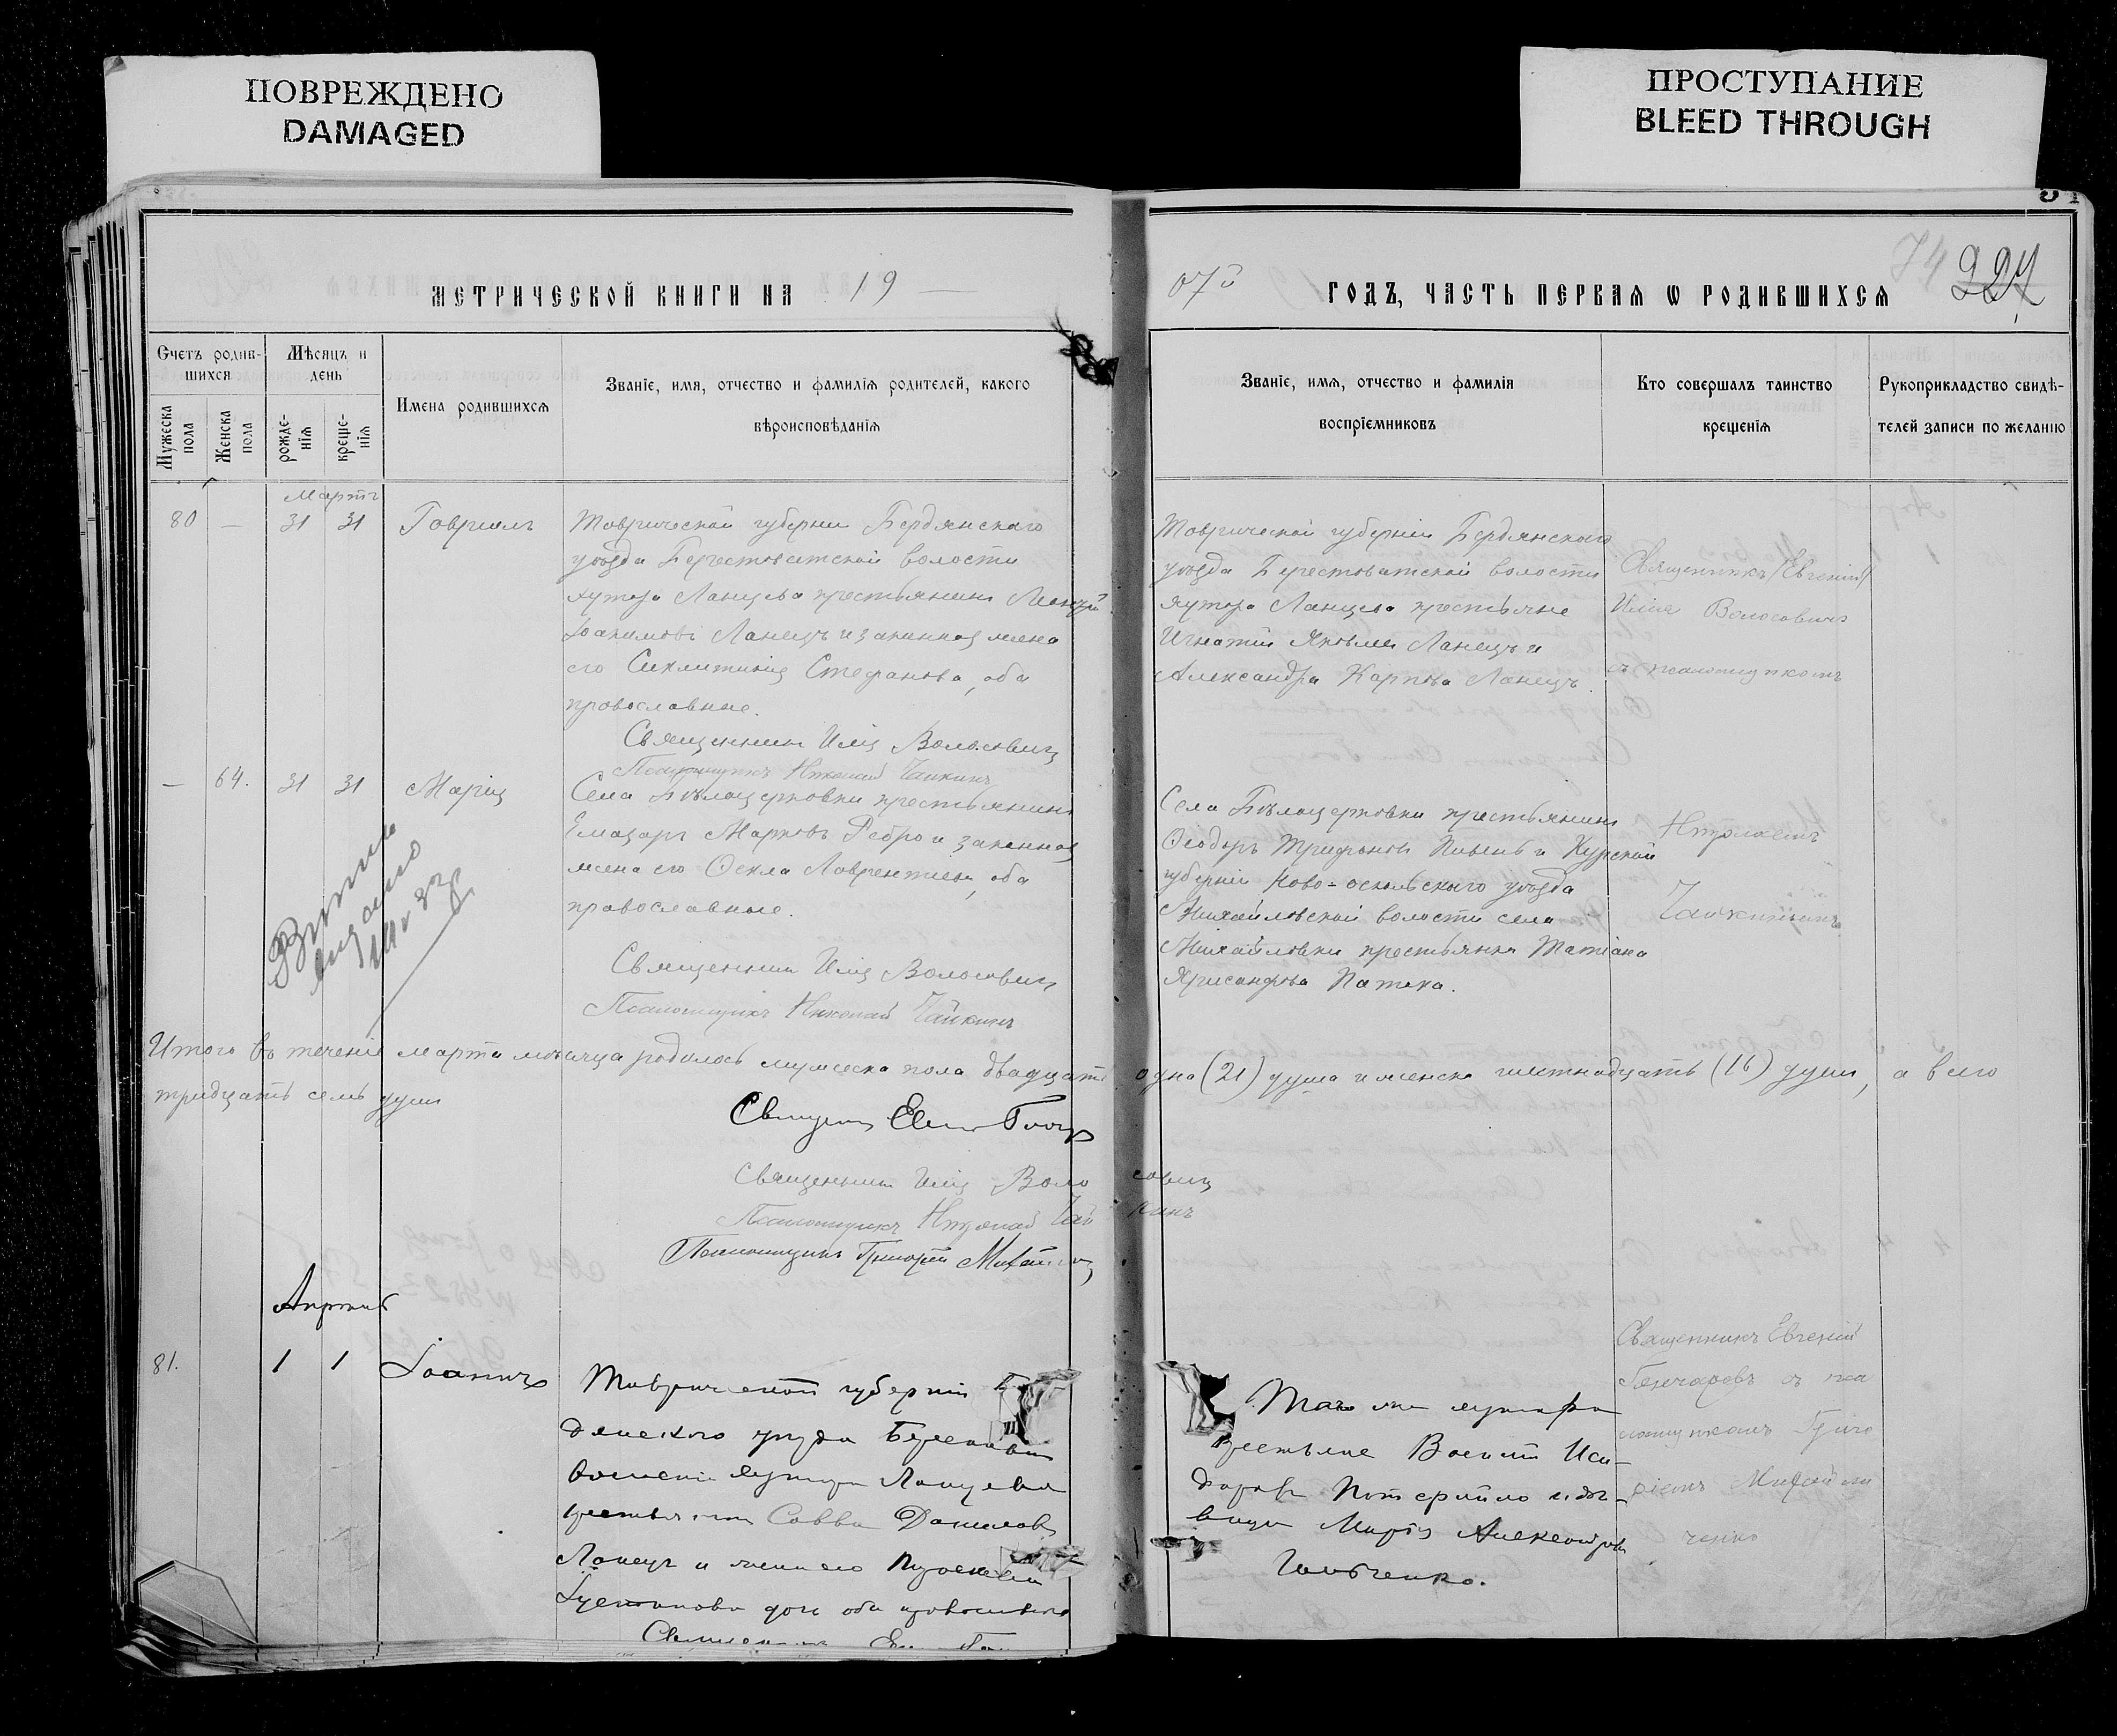 ПОВРЕЖДЕНО
DAMAGED
ПРОСТУПАНИЕ
BLEED THROUGH
МЕТРИЧЕСКОЙ КНИГИ НА 19
07й ГОДЪ, ЧАСТЬ ПЕРВАЯ Ѡ РОДИВШИХСЯ
74 224
Счетъ родив-
шихся
Мужеска пола
Женска пола
Мѣсяцъ и
день
рожде-
нія
креще-
нія
Имена родившихся
Званіе, имя, отчество и фамилія родителей, какого
вѣроисповѣданія
Званіе, имя, отчество и фамилія
воспріемниковъ
Кто совершалъ таинство
крещенія
Рукоприкладство свидѣ-
телей записи по желанію
Мартъ
80 — 31 31 Гавріилъ
Таврической губерніи Бердянскаго
уѣзда Берестоватской волости
хутора Ланцева крестьянинъ
Іоакимовъ Ланецъ и законная жена
его Синклитикія Стефанова, оба
православные.
Священникъ Илія Волосовичъ
Псаломщикъ Николай Чайкинъ
Таврической губерніи Бердянскаго
уѣзда Берестоватской волости
хутора Ланцева крестьяне
Игнатій Яковлев Ланецъ и
Александра Карпова Ланецъ.
Священникъ /Евгеній/
Илія Волосовичъ
съ псаломщикомъ
— 64. 31 31 Марія
Села Бѣлоцерковки крестьянинъ
Елиазаръ Марковъ Ребро и законная
жена его Ѳекла Лаврентіева, оба
православные.
Священникъ Илія Волосовичъ
Псаломщикъ Николай Чайкинъ
Села Бѣлоцерковки крестьянинъ
Ѳеодоръ Трифоновъ Пивень и Курской
губерніи Ново-оскольскаго уѣзда
Михайловской волости села
Михайловки крестьянка Татіана
Патока.
Николаемъ
Чайкинымъ
выдано
Итого въ теченіе марта мѣсяца родилось мужеска пола двадцать одна (21) душа и женска шестнадцать (16) душъ, а всего
тридцать семь душъ
Священникъ Илія Волосовичъ
Псаломщикъ Николай Чайкинъ
Псаломщикъ Григорій
Апрель
81. 1 1 Іоаннъ
Таврической губерніи
дянскаго уѣзда
волости хутора Ланцева
крестьянинъ Савва Даниловъ
Ланецъ и жена его
оба православные
Того же хутора
крестьяне Василій Иси-
доровъ и дѣ-
вица Марія Александрова
Священникъ Евгеній
Гончаровъ съ пса
ломщикомъ Григо
ріемъ Михайли
ченко